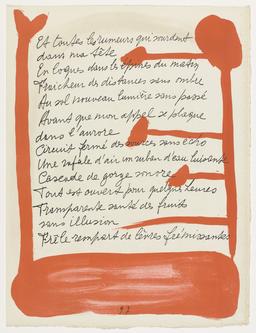 Et toutes les rumeurs qui sourdent
dans ma tête
En loques dans les épines du matin
Fraîcheur des distances sans ombre
Au sol nouveau lumière sans passé
Avant que mon appel se plaque
dans l'aurore
Circuit fermé des sources sans écho
Une rafale d'air un ruban d'eau luisante
Cascade de gorge sonore
Tout est ouvert pour quelques heures
Transparente santé des fruits
sans illusion
Frêle rempart de lèvres frémissantes
97